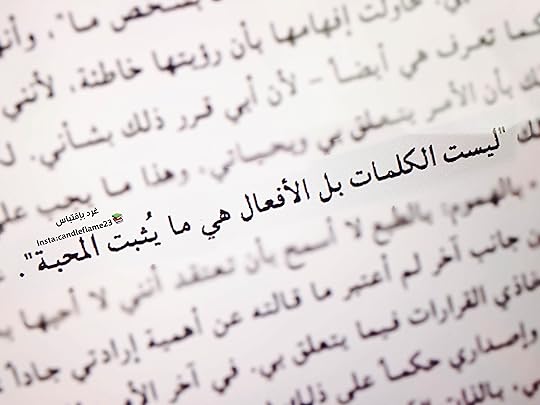 بشخص ما"، وأنها
حاولت إفهامها بأن رؤيتها خاطئة، لأنني
كما تعرف هي أيضاً – لأن أبي قرر ذلك بشأني.
بأن الأمر يتعلق بي وبحياتي. وهذا ما يجب
"ليست الكلمات بل الأفعال هي ما يُثبت المحبة".
غرد بإقتباس
Insta:candleflame23
بالهموم: بالطبع لا أسمح بأن تعتقد أنني لا أحبها
جانب آخر لم أعتبر ما قالته عن أهمية إرادتي جاداً
القرارات فيما يتعلق بي. في آخر
وإصداري حكماً على